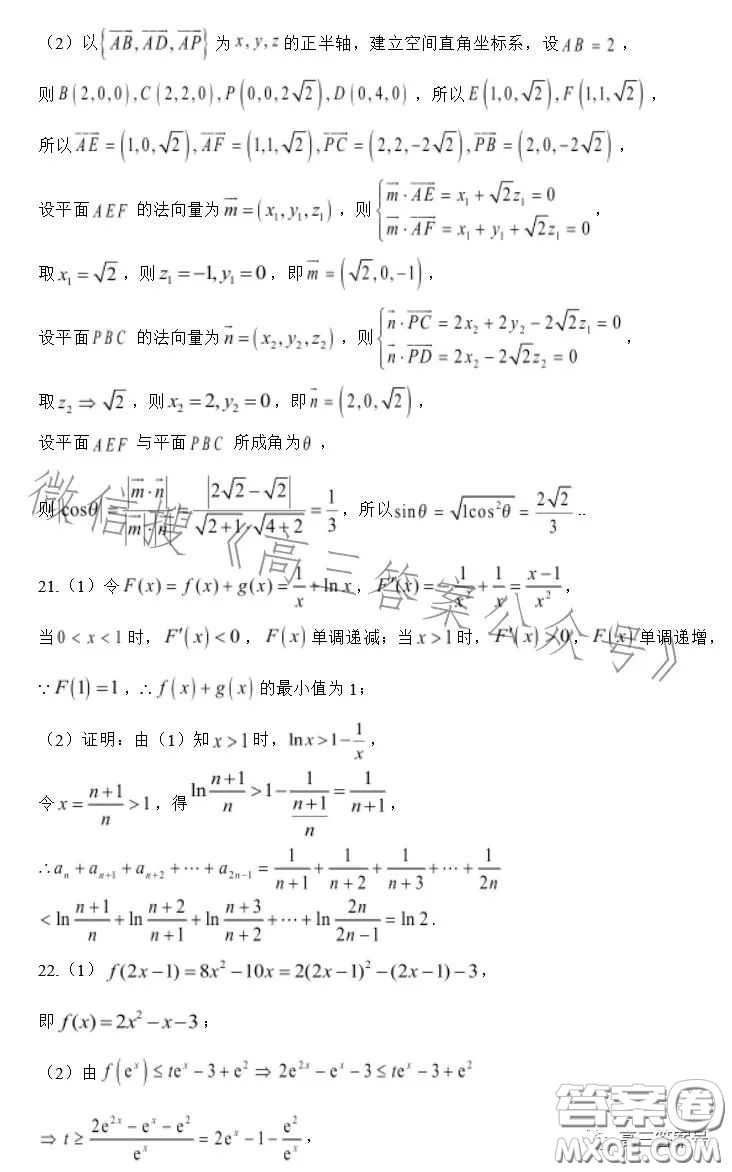 （2）以{AB→, AD→, AP→}为x, y, z的正半轴，建立空间直角坐标系，设AB = 2，
则B(2,0,0), C(2,2,0), P(0,0,2√2), D(0,4,0)，所以E(1,0,√2), F(1,1,√2)，
所以AE→ = (1,0,√2), AF→ = (1,1,√2), PC→ = (2,2,-2√2), PB→ = (2,0,-2√2)，
设平面AEF 的法向量为m→ = (x₁, y₁, z₁)，则{m→·AE→ = x₁ + √2z₁ = 0
m→·AF→ = x₁ + y₁ + √2z₁ = 0，
取x₁ = √2，则z₁ = -1, y₁ = 0，即m→ = (√2,0,-1)，
设平面PBC 的法向量为n→ = (x₂, y₂, z₂)，则{n→·PC→ = 2x₂ + 2y₂ - 2√2z₁ = 0
n→·PD→ = 2x₂ - 2√2z₂ = 0，
取z₂ ⇒ √2，则x₂ = 2, y₂ = 0，即n→ = (2,0,√2)，
设平面AEF 与平面PBC 所成角为θ，
则|cosθ| = |m→·n→|/(|m→|·|n→|) = |2√2-√2|/(√(2+1)·√(4+2)) = 1/3，所以sinθ = √(1cos²θ) = 2√2/3 ..
21.（1）令F(x) = f(x) + g(x) = 1/x + ln x，F′(x) = -1/x² + 1/x = (x-1)/x²，
当0 < x < 1时，F′(x) < 0，F(x)单调递减；当x > 1时，F′(x) > 0，F(x)单调递增，
∵F(1) = 1，∴f(x) + g(x)的最小值为1；
（2）证明：由（1）知x > 1时，ln x > 1 - 1/x，
令x = (n+1)/n > 1，得ln (n+1)/n > 1 - 1/((n+1)/n) = 1/(n+1)，
∴aₙ + aₙ₊₁ + aₙ₊₂ + ⋯ + a₂ₙ₋₁ = 1/(n+1) + 1/(n+2) + 1/(n+3) + ⋯ + 1/2n
< ln (n+1)/n + ln (n+2)/(n+1) + ln (n+3)/(n+2) + ⋯ + ln 2n/(2n-1) = ln 2.
22.（1）f(2x-1) = 8x² - 10x = 2(2x-1)² - (2x-1) - 3，
即f(x) = 2x² - x - 3；
（2）由f(eˣ) ≤ teˣ - 3 + e² ⇒ 2e²ˣ - eˣ - 3 ≤ teˣ - 3 + e²
⇒ t ≥ (2e²ˣ - eˣ - e²)/eˣ = 2eˣ - 1 - e²/eˣ，
微信搜《高三答案公众号》
答案卷
高三答案号
MXQE.COM